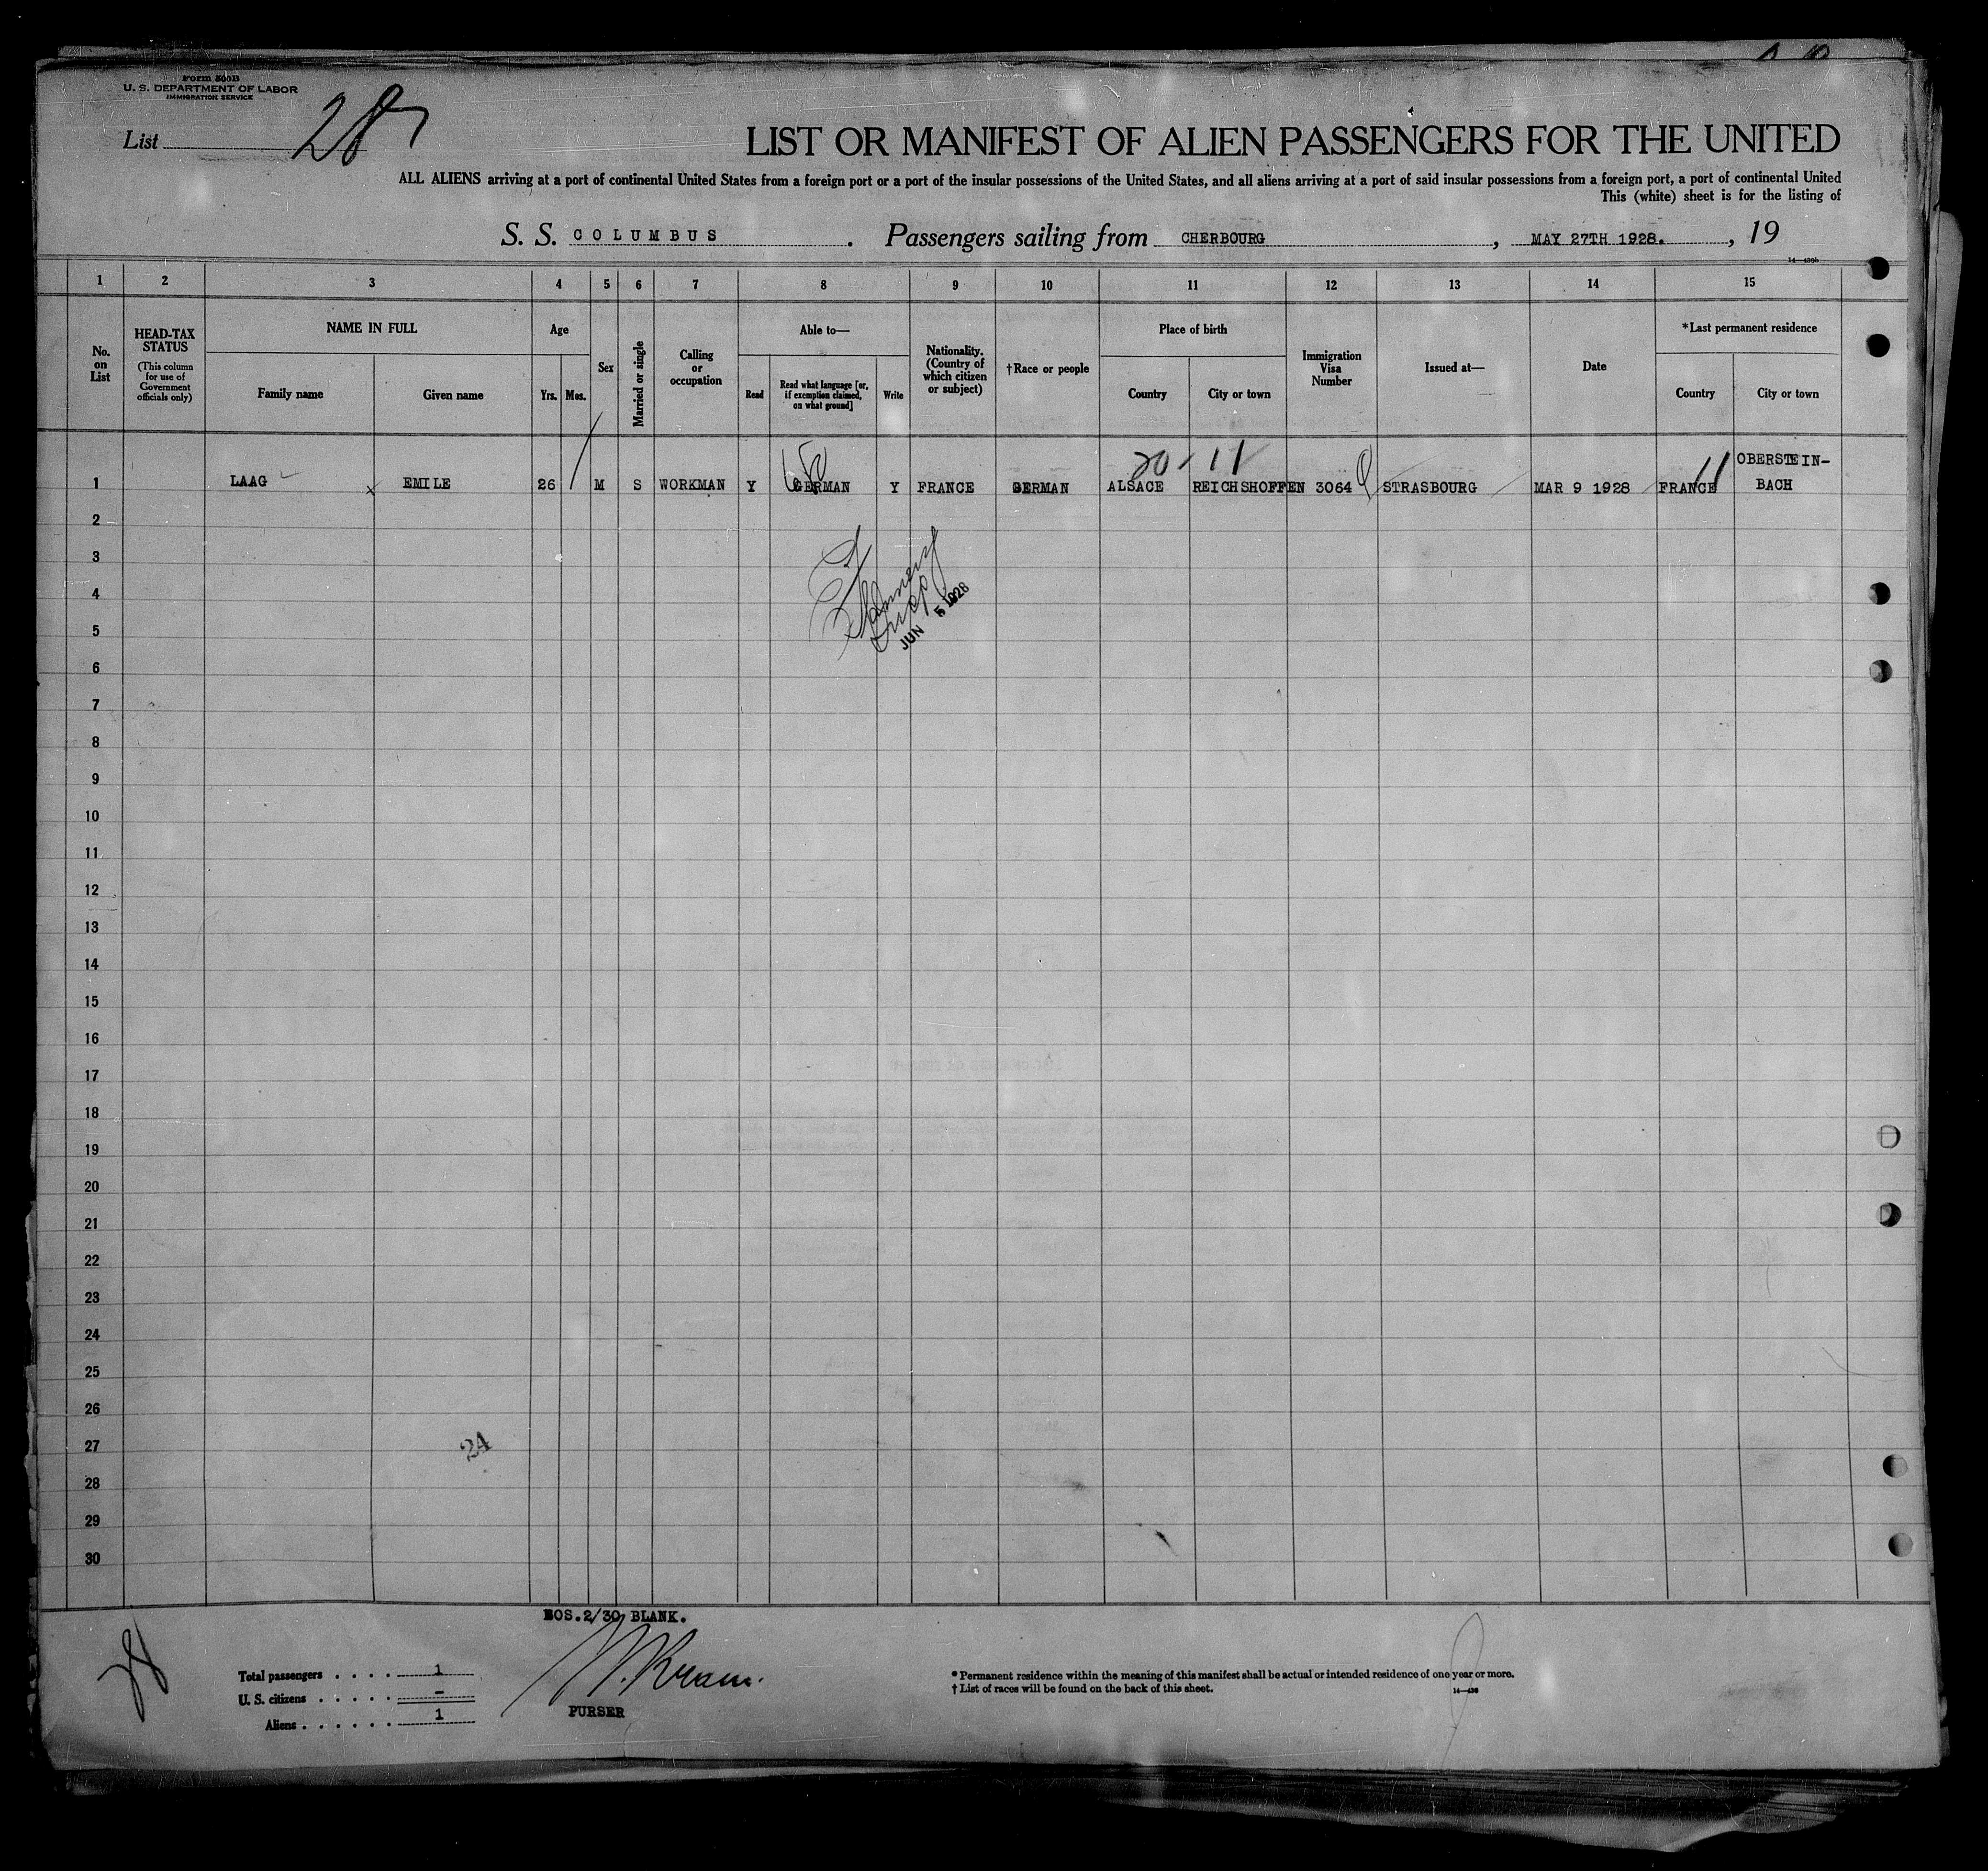 Form 500B
U. S. DEPARTMENT OF LABOR
IMMIGRATION SERVICE
List 28
LIST OR MANIFEST OF ALIEN PASSENGERS FOR THE UNITED
ALL ALIENS arriving at a port of continental United States from a foreign port or a port of the insular possessions of the United States, and all aliens arriving at a port of said insular possessions from a foreign port, a port of continental United
This (white) sheet is for the listing of
S. S. COLUMBUS. Passengers sailing from CHERBOURG, MAY 27TH 1928., 19
14—439b
1 2 3 4 5 6 7 8 9 10 11 12 13 14 15
No. on List
HEAD-TAX STATUS
(This column for use of Government officials only)
NAME IN FULL
Family name
Given name
Age
Yrs. Mos.
Sex
Married or single
Calling or occupation
Able to—
Read
Read what language [or, if exemption claimed, on what ground]
Write
Nationality. (Country of which citizen or subject)
†Race or people
Place of birth
Country
City or town
Immigration Visa Number
Issued at—
Date
*Last permanent residence
Country
City or town
20 11
1 LAAG x EMILE 26 M S WORKMAN Y GERMAN Y FRANCE GERMAN ALSACE REICHSHOFFEN 3064 STRASBOURG MAR 9 1928 FRANCE 11 OBERSTEIN-
BACH
2
3
4
JUN 5 1928
5
6
7
8
9
10
11
12
13
14
15
16
17
18
19
20
21
22
23
24
25
26
27 24
28
29
30
NOS.2/30 BLANK.
28
Total passengers . . . . . 1
U. S. citizens . . . . . –
Aliens . . . . . . 1
W. Kram.
PURSER
* Permanent residence within the meaning of this manifest shall be actual or intended residence of one year or more.
† List of races will be found on the back of this sheet.
14—438